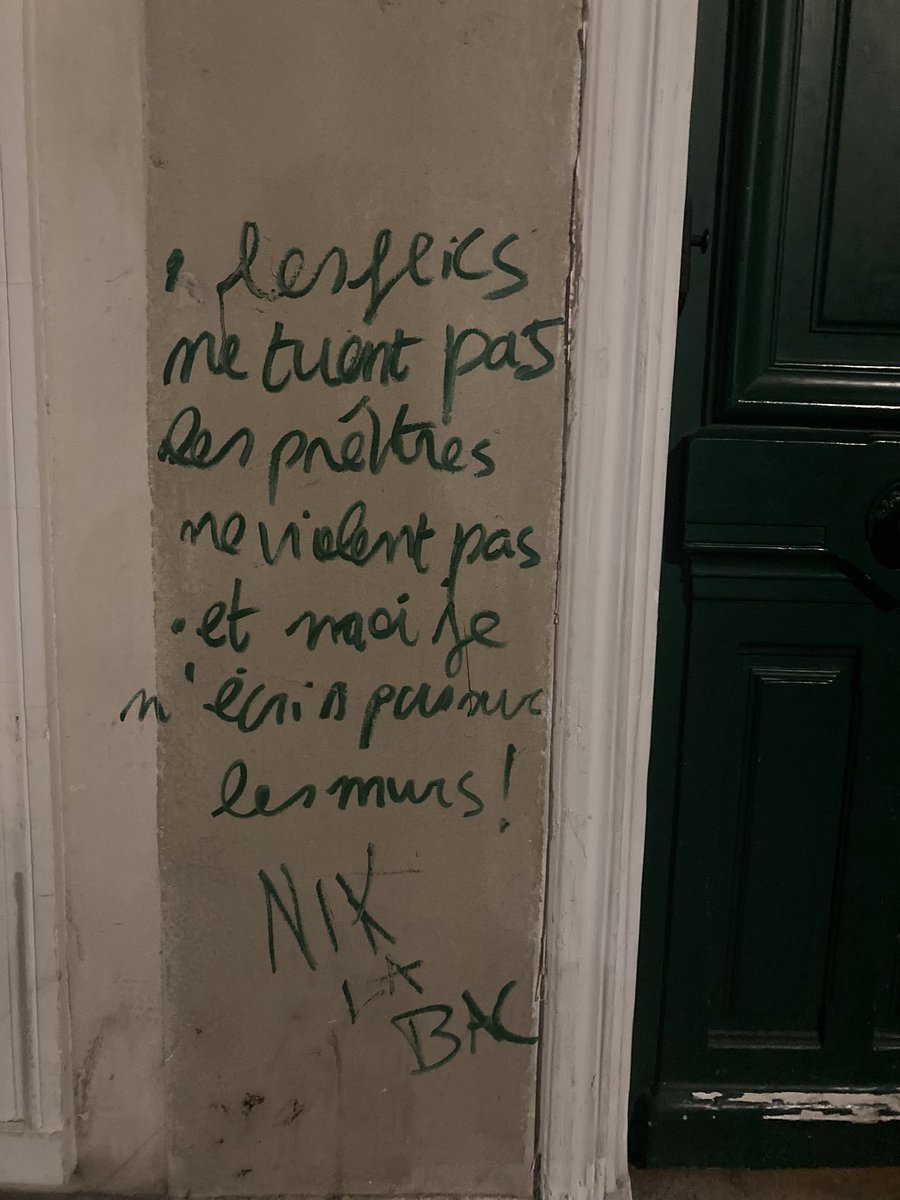 . les flics
ne tuent pas
Les prêtres
ne violent pas
. et moi je
n'écris pas sur
les murs !
NIK
LA
BAC